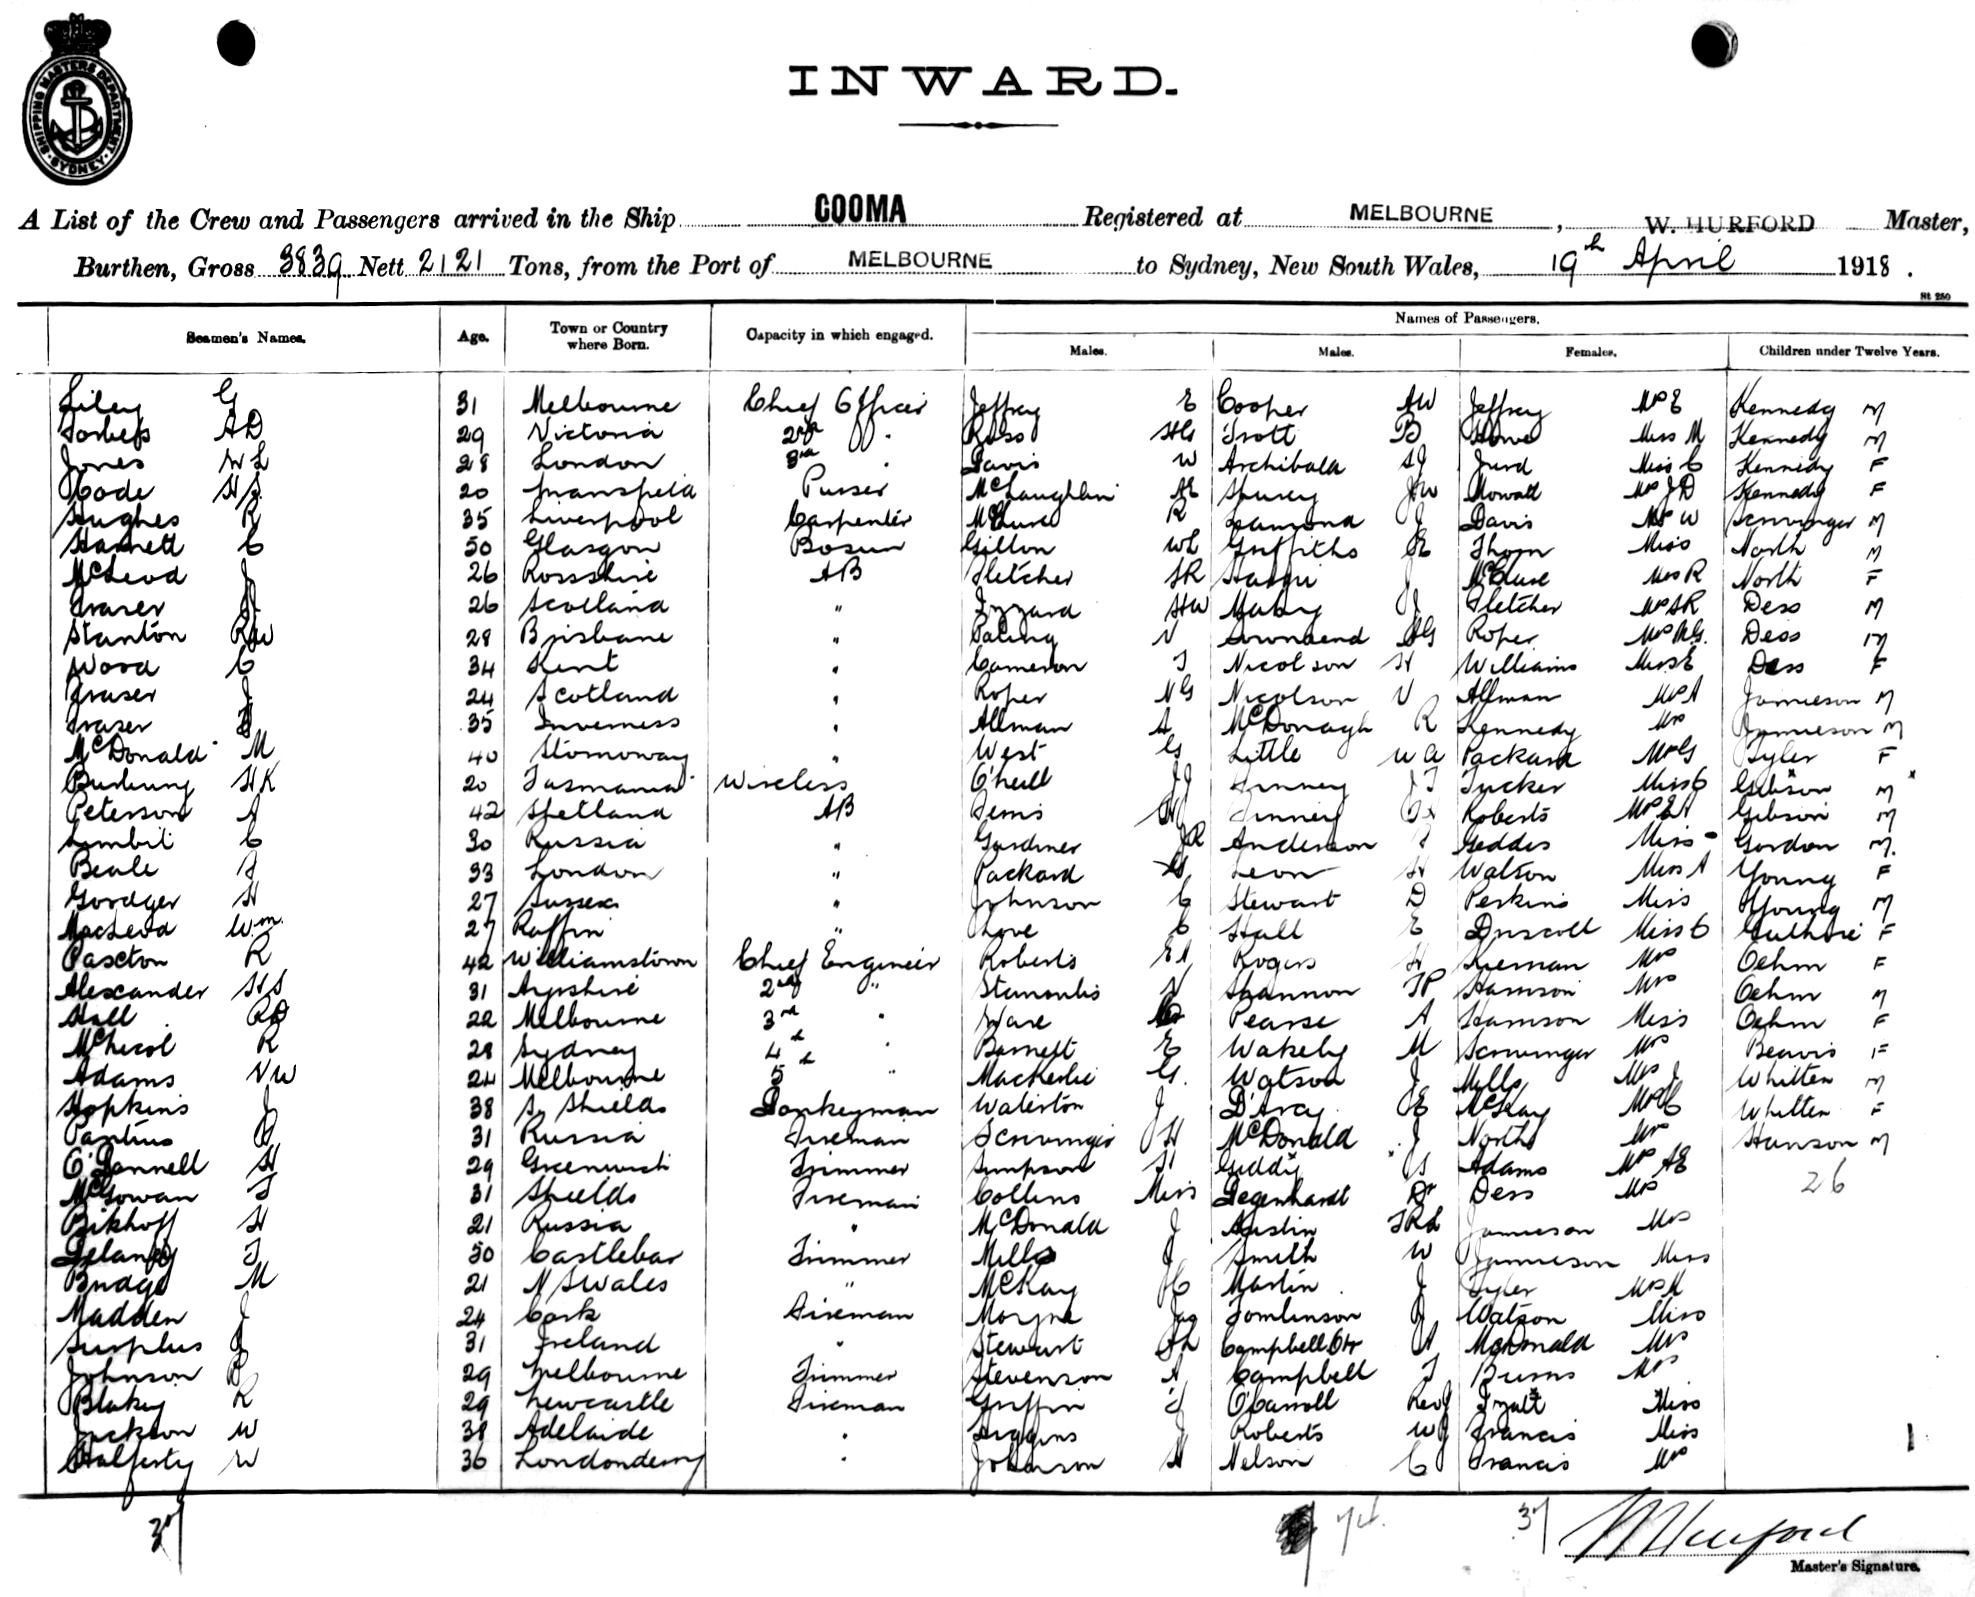 SHIPPING MASTERS DEPARTMENT · SYDNEY ·
INWARD.
A List of the Crew and Passengers arrived in the Ship COOMA Registered at MELBOURNE, W. HURFORD Master,
Burthen, Gross 3839 Nett 2121 Tons, from the Port of MELBOURNE to Sydney, New South Wales, 19th April 1918.
St 250
Seamen's Names. Age. Town or Country where Born. Capacity in which engaged. Names of Passengers.
Males. Males. Females. Children under Twelve Years.
Liley G 31 Melbourne Chief Officer Jeffrey E Cooper AW Jeffrey Mrs E Kennedy M
Forbes AD 29 Victoria 2nd " Ross HG Trott B Howe Miss M Kennedy M
Jones WL 28 London 3rd " Davis W Archibald SJ Jurd Miss C Kennedy F
Hode 20 Mansfield Purser McLaughlin AE JW Mowatt Mrs JD Kennedy F
Hughes R 35 Liverpool Carpenter McClure R J Davis Mrs W Scrivinger M
Harnett C 50 Glasgow Bosun Gilton WL Griffiths E Thom Miss North M
McLeod J 26 Rossshire AB Fletcher SR J McClure Mrs R North F
Fraser J 26 Scotland " Izzard HW J Fletcher Mrs SR Dess M
Stanton RW 28 Brisbane " Paling V Townsend HG Roper Mrs NG. Dess M
Wood C 34 Kent " Cameron T Nicolson H Williams Miss E Dess F
Fraser J 24 Scotland " Roper NG Nicolson V Allman Mrs A Jamieson M
Fraser 35 Inverness " Allman A McDonagh R Kennedy Mrs Jamieson M
McDonald M 40 Stornoway " West G Little WA Packard Mrs G Tyler F
HK 20 Tasmania Wireless O'Neill JJ Finney JT Tucker Miss C Gibson M
Peterson A 42 Shetland AB Finney Roberts Mrs EA Gibson M
C 30 Russia " Gardiner JR Anderson Geddes Miss Gordon M.
Beale A 33 London " Packard G Leon H Watson Miss A Young F
Goodger H 27 Sussex " Johnson C Stewart D Perkins Miss Young M
MacLeod Wm. 27 " Love C Hall E Driscoll Miss C Guthrie F
Paxton R 42 Williamstown Chief Engineer Roberts EA Rogers H Kiernan Mrs Oehm F
Alexander HS 31 Ayrshire 2nd " V Shannon TP Harrison Mrs Oehm M
Hall RD 22 Melbourne 3rd " Ware Pearse A Harrison Miss Oehm F
McNicol R 28 Sydney 4th " Barnett E Wakely M Scrivinger Mrs Beavis F
Adams VW 24 Melbourne 5th " MacKerlie G. Watson J Mills Mrs J Whitten M
Hopkins J 38 S. Shields Donkeyman Waterston J D'Arcy E McKay Mrs C Whitten F
31 Russia Fireman Scrivinger H McDonald J North Mrs Hanson M
O'Donnell H 29 Greenwich Trimmer Simpson H Giddy G Adams Mrs AE 26
McGowan T 31 Shields Fireman Collins Miss Degenhardt Dr Dess Mrs
Bikhoff H 21 Russia " McDonald J Austin Jamieson Mrs
Delaney T 50 Castlebar Trimmer Mills J Smith W Jamieson Miss
Budge M 21 N S Wales " McKay C Martin J Tyler Mrs M
Madden J 24 Cork Fireman Moyne Jas Tomlinson J Watson Miss
Surplus J 31 Ireland " Stewart Campbell McDonald Mrs
Johnson B 29 Melbourne Trimmer Stevenson A Campbell T Burns Mrs
Blakey R 29 Newcastle Fireman Griffin J O'Carroll Rev J Miss
Jackson W 38 Adelaide " Higgins J Roberts WJ Francis Miss
Halferty W 36 Londonderry " Johnson A Nelson C Francis Mrs
37 74 37 W Hurford
Master's Signature.